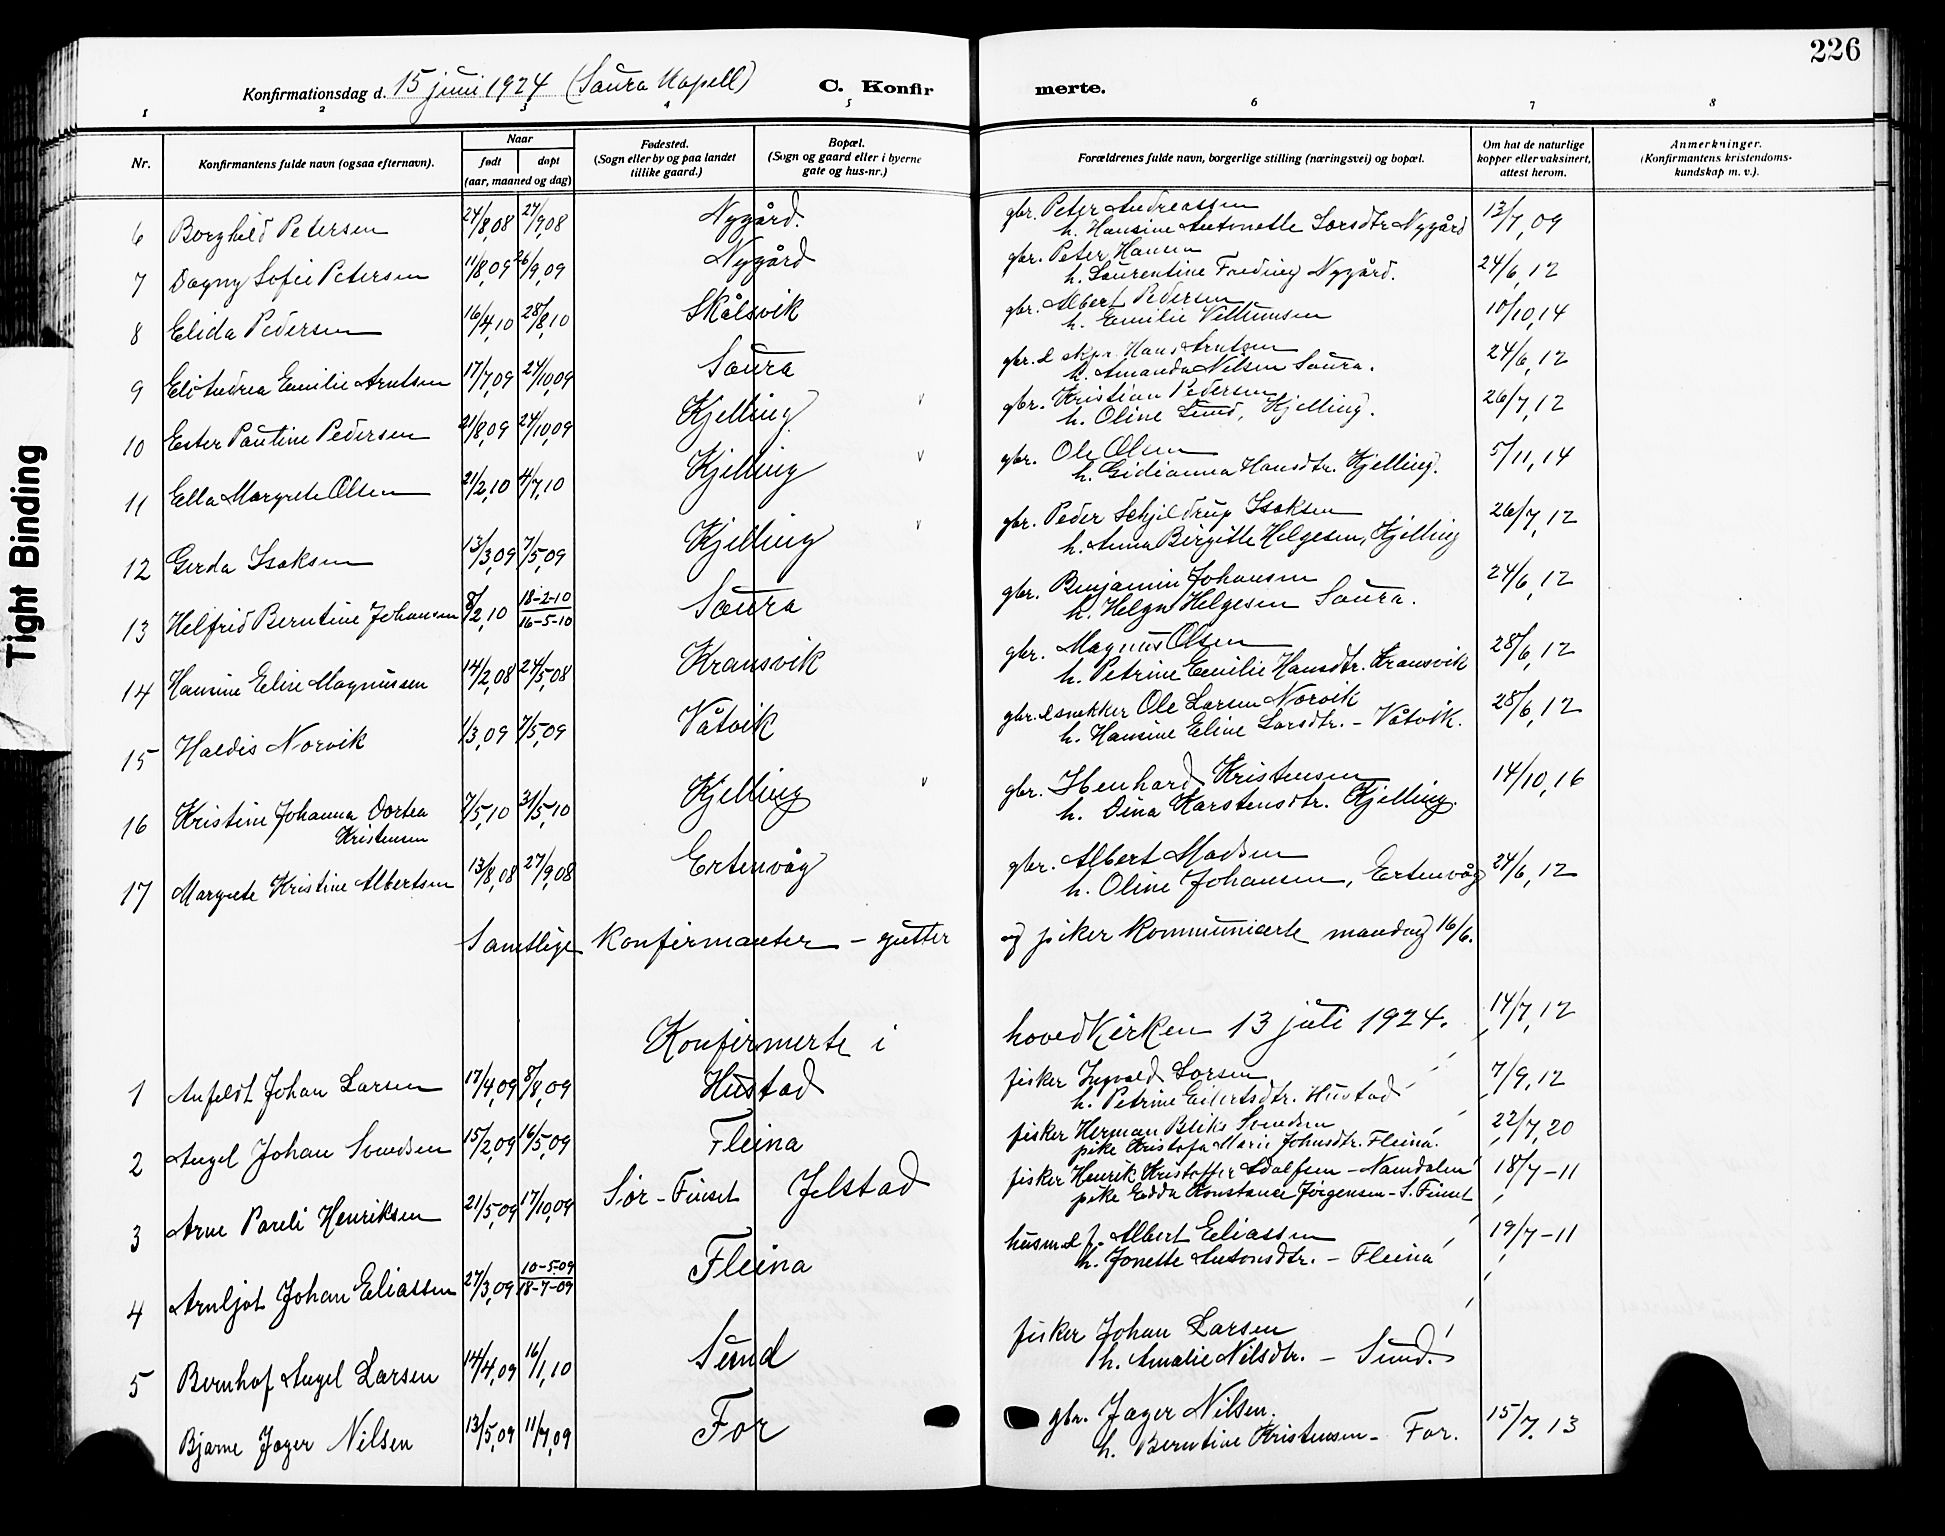 226
Tight Binding
Konfirmationsdag d. 15 juni 1924 (Saura Kapell) C. Konfirmerte.
1 2 3 4 5 6 7 8
Nr. Konfirmantens fulde navn (ogsaa efternavn). Naar født døpt (aar, maaned og dag) Fødested. (Sogn eller by og paa landet tillike gaard.) Bopæl. (Sogn og gaard eller i byerne gate og hus-nr.) Forældrenes fulde navn, borgerlige stilling (næringsvei) og bopæl. Om hat de naturlige kopper eller vaksinert, attest herom. Anmerkninger. (Konfirmantens kristendoms-kundskap m. v.).
6 Borghild Petersen 24/8,08 27/9,08 Nygård. gbr. Peter Andreassen 13/7,09
h. Hansine Antonette Larsdtr Nygård
7 Dagny Sofie Petersen 11/8,09 26/9,09 Nygård gbr. Peter Hansen 24/6,12
h. Laurentine Nygård.
8 Elida Pedersen 16/4,10 28/8,10 Skålsvik gbr. Albert Pedersen 10/10,14
h. Emilie
9 Eli Andrea Emilie Arntsen 17/7,09 24/10,09 Saura gbr. & skpr. Hans Arntsen 24/6,12
h. Amanda Nilsen Saura.
10 Ester Pauline Pedersen 21/8,09 24/10,09 Kjelling gbr. Kristian Pedersen 26/7,12
h. Oline Lund, Kjelling.
11 Ella Margrete Olsen 21/2,10 4/7,10 Kjelling gbr. Ole Olsen 5/11,14
h. Gidianna Hansdtr. Kjelling.
12 Gerda Isaksen 13/3,09 7/5,09 Kjelling gbr. Peder Schjeldrup Isaksen 26/7,12
h. Anna Birgitte Helgesen, Kjelling
13 Helfrid Berntine Johansen 8/2,10 18-2-10 16-5-10 Saura gbr. Benjamin Johansen 24/6,12
h. Helga Helgesen Saura.
14 Hansine Eline Magnussen 14/2,08 24/5,08 Kransvik gbr. Magnus Olsen 28/6,12
h. Petrine Emilie Hansdtr. Kransvik
15 Haldis Norvik 1/3,09 7/5,09 Våtvik gbr. & snekker Ole Larsen Norvik 28/6,12
h. Hansine Eline Larsdtr. – Våtvik.
16 Kristine Johanna Dortea 7/5,10 31/5,10 Kjelling gbr. Henhard Kristensen 14/10,16
Kristensen h. Dina Karstensdtr. Kjelling.
17 Margrete Kristine Albertsen 13/8,08 27/9,08 Ertenvåg gbr. Albert Madsen 24/6,12
h. Oline Johansen, Ertenvåg
Samtlige konfirmanter – gutter og piker kommunicerte mandag 16/6.
Konfirmerte i hovedkirken 13 juli 1924. 14/7,12
1 Anfeldt Johan Larsen 17/4,09 8/8,09 Hustad fisker Ingvald Larsen 7/9,12
h. Petrine Eilertsdtr. Hustad
2 Angel Johan Svendsen 15/2,09 16/5,09 Fleina fisker Herman Svendsen 22/7,20
pike Kristofa Marie Johnsdtr. Fleina.
3 Arne Pareli Henriksen 21/5,09 17/10,09 Sør-Finset Jelstad fisker Henrik Kristoffer Adolfsen – Namdalen 18/7-11
pike Edda Konstance Jørgensen – S. Finset
4 Arnljot Johan Eliassen 27/3,09 10-5-09 18-7-09 Fleina husm. & f. Albert Eliassen 19/7-11
h. Jonette Antonsdtr. – Fleina
5 Bernhof Angel Larsen 14/4,09 16/1,10 Sund fisker Johan Larsen
h. Amalie Nilsdtr. – Sund.
Bjarne Jager Nilsen 13/5,09 11/7,09 For gbr. Jager Nilsen. 15/7.13
h. Berntine Kristensen – For.